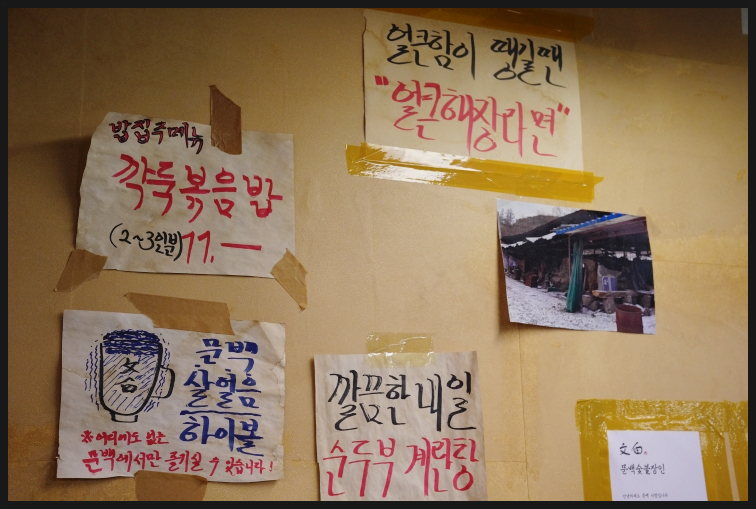 얼큰함이 땡길땐
"얼큰해장라면"
밥집주메뉴
깍둑볶음밥
(2~3인분) 11.—
文白
문백
살얼음
하이볼
※ 어디에도 없는
문백에서만 즐기실 수 있습니다!
깔끔한 내일
순두부 계란탕
文白의
문백숯불장인